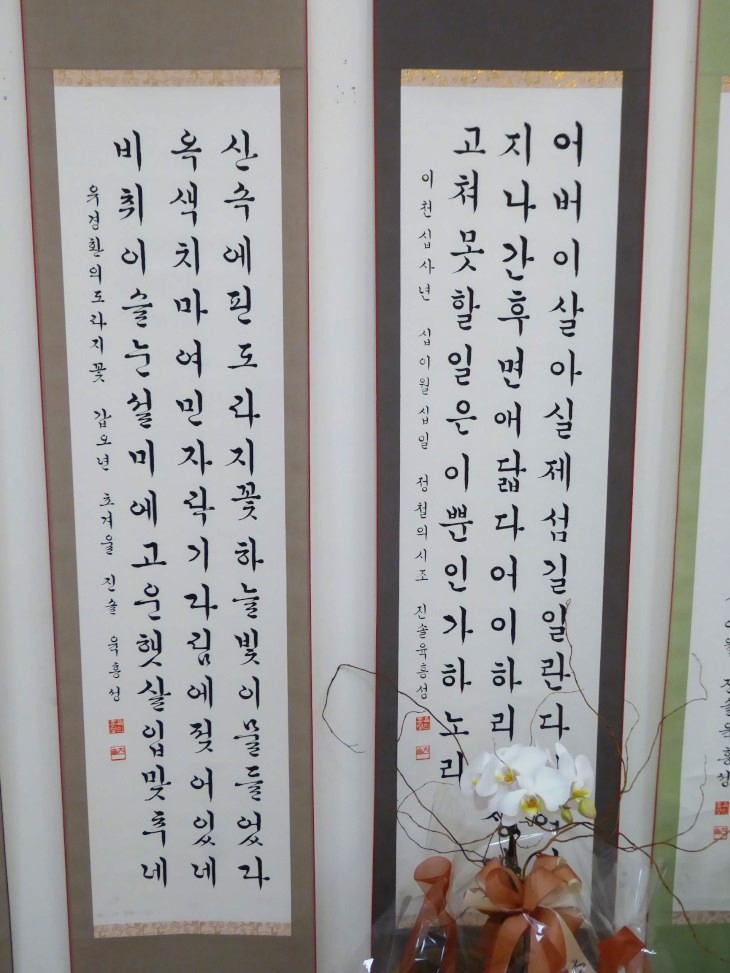 어버이살아실제섬길일란다
지나간후면애닯다어이하리
고쳐못할일은이뿐인가하노라
이천십사년 십이월십일 정철의시조 진솔육홍성
산속에핀도라지꽃하늘빛이물들었라
옥색치마여민자락기다림에젖어있네
비취이슬눈썰미에고운햇살입맞추네
유경환의도라지꽃 갑오년 초겨울 진솔 육홍성
진솔육홍성